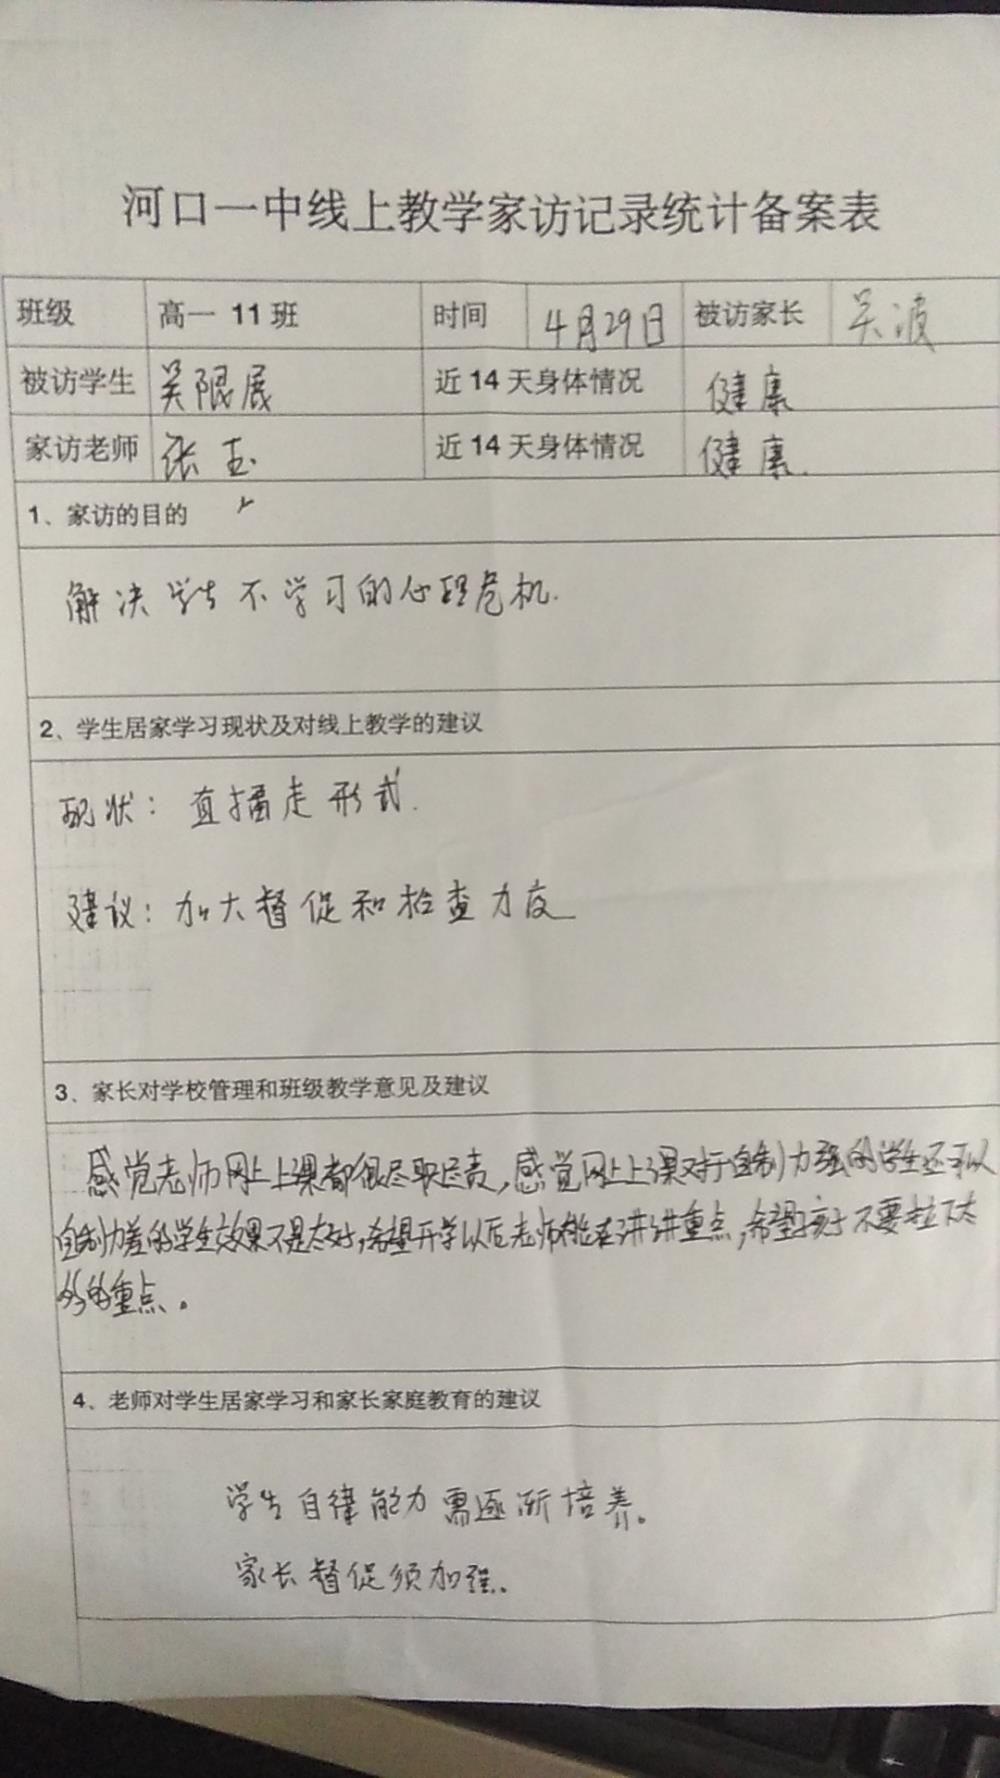 河口一中线上教学家访记录统计备案表
班级 高一 11 班 时间 4月29日 被访家长 吴波
被访学生 吴限展 近 14 天身体情况 健康
家访老师 张玉 近 14 天身体情况 健康.
1、家访的目的
解决学生不学习的心理危机.
2、学生居家学习现状及对线上教学的建议
现状：直播走形式.
建议：加大督促和检查力度
3、家长对学校管理和班级教学意见及建议
感觉老师网上上课都很尽职尽责,感觉网上上课对于自制力强的学生还可以
自制力差的学生效果不是太好,希望开学以后老师能在讲讲重点,希望孩子不要拉下太
多的重点。
4、老师对学生居家学习和家长家庭教育的建议
学生自律能力需逐渐培养。
家长督促须加强。